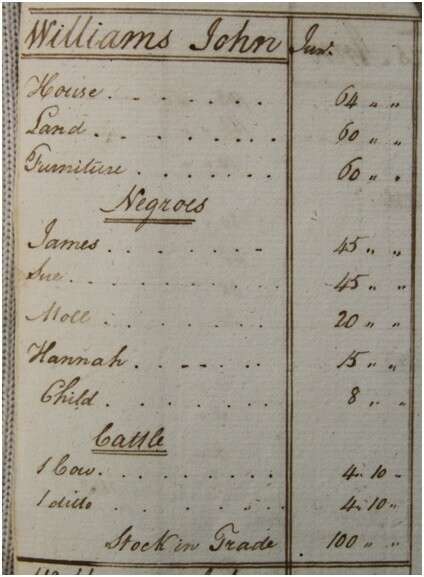 Williams John Junr.
House . . . . . . . 64 " "
Land . . . . . . . . 60 " "
Furniture . . . . . . . 60 " "
Negroes
James . . . . . . . 45 " "
Sue . . . . . . . . . . 45 " "
Moll . . . . . . . . 20 " "
Hannah . . . . . . 15 " "
Child . . . . . . . . 8 " "
Cattle
1 Cow . . . . . . . . . 4 " 10 "
1 ditto . . . . . . . . 4 " 10 "
Stock in Trade 100 " "